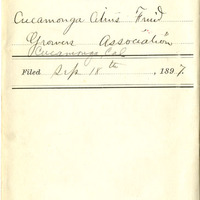 Cucamonga Citrus Fruit
Growers Association
Cucamonga Cal
Filed Sep 18th, 1897.